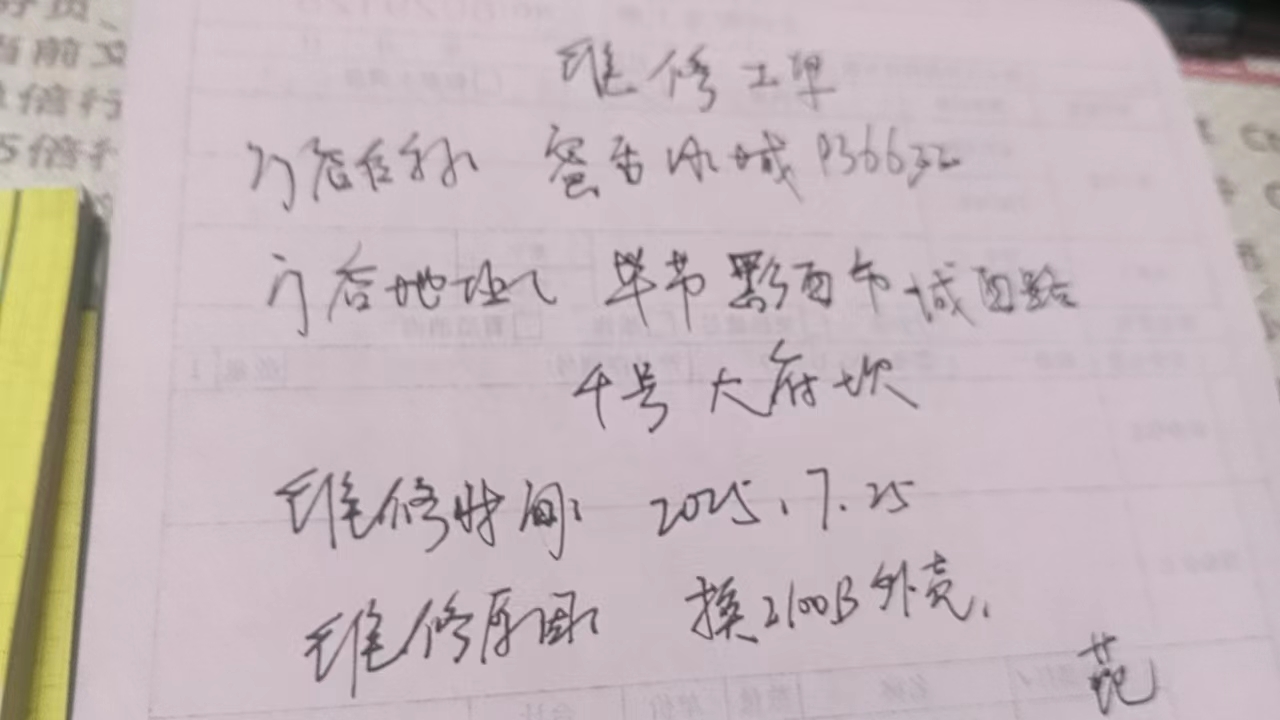 维修工单
门店名称 蜜雪冰城 P36632
门店地址: 毕节黔西市城西路
千号大府坎
维修时间: 2025.7.25
维修原因: 换2100B外壳.
范
前
倍行
5倍行